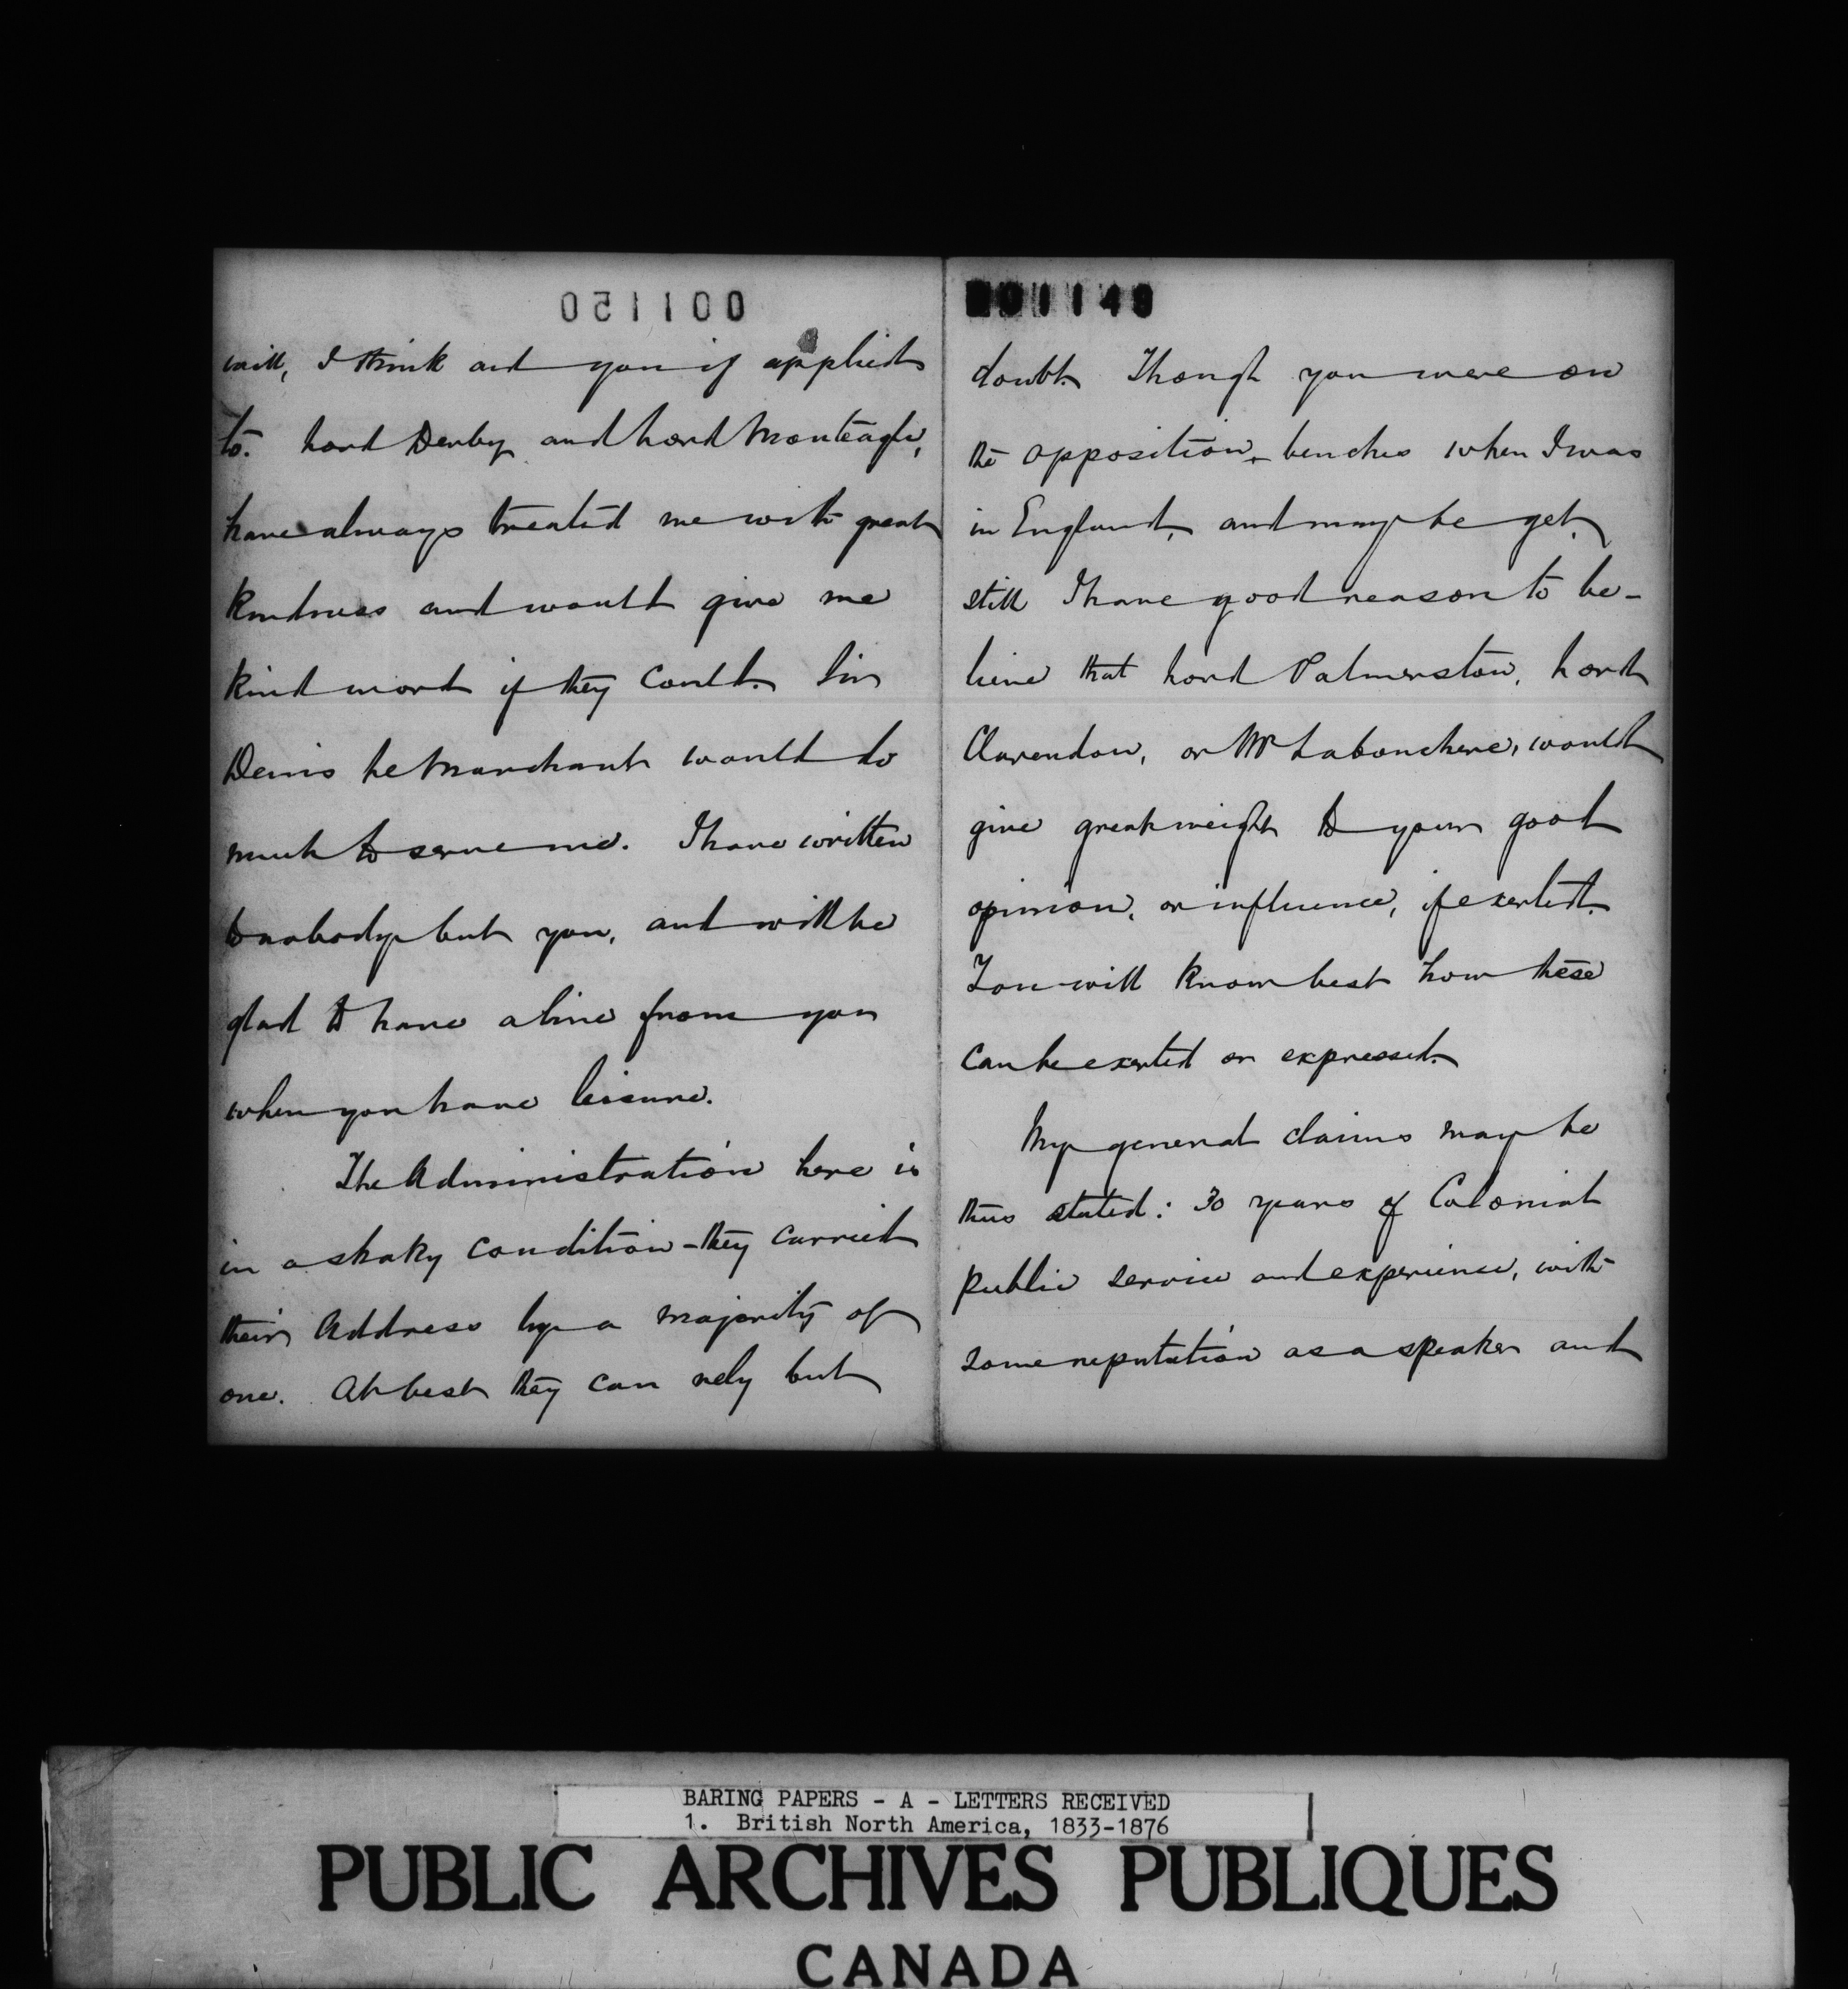 001150
will, I think aid you if applied
to. Lord Derby and Lord Monteagle,
have always treated me with great
kindness and would give me
kind word if they could. Sir
Denis Le Marchant would do
much to serve me. I have written
to nobody but you, and will be
glad to have a line from you
when you have leisure.
The Administration here is
in a shaky condition - they carried
their Address by a majority of
one. At best they can rely but
001149
doubt. Though you were on
the opposition benches when I was
in England, and may be yet,
still I have good reason to be-
lieve that Lord Palmerston, Lord
Clarendon, or Mr Labouchere, would
give great weight to your good
opinion, or influence, if exerted.
You will know best how these
can be exerted or expressed.
My general claims may be
thus stated: 30 years of Colonial
public service and experience, with
some reputation as a speaker and
BARING PAPERS - A - LETTERS RECEIVED
1. British North America, 1833-1876
PUBLIC ARCHIVES PUBLIQUES
CANADA